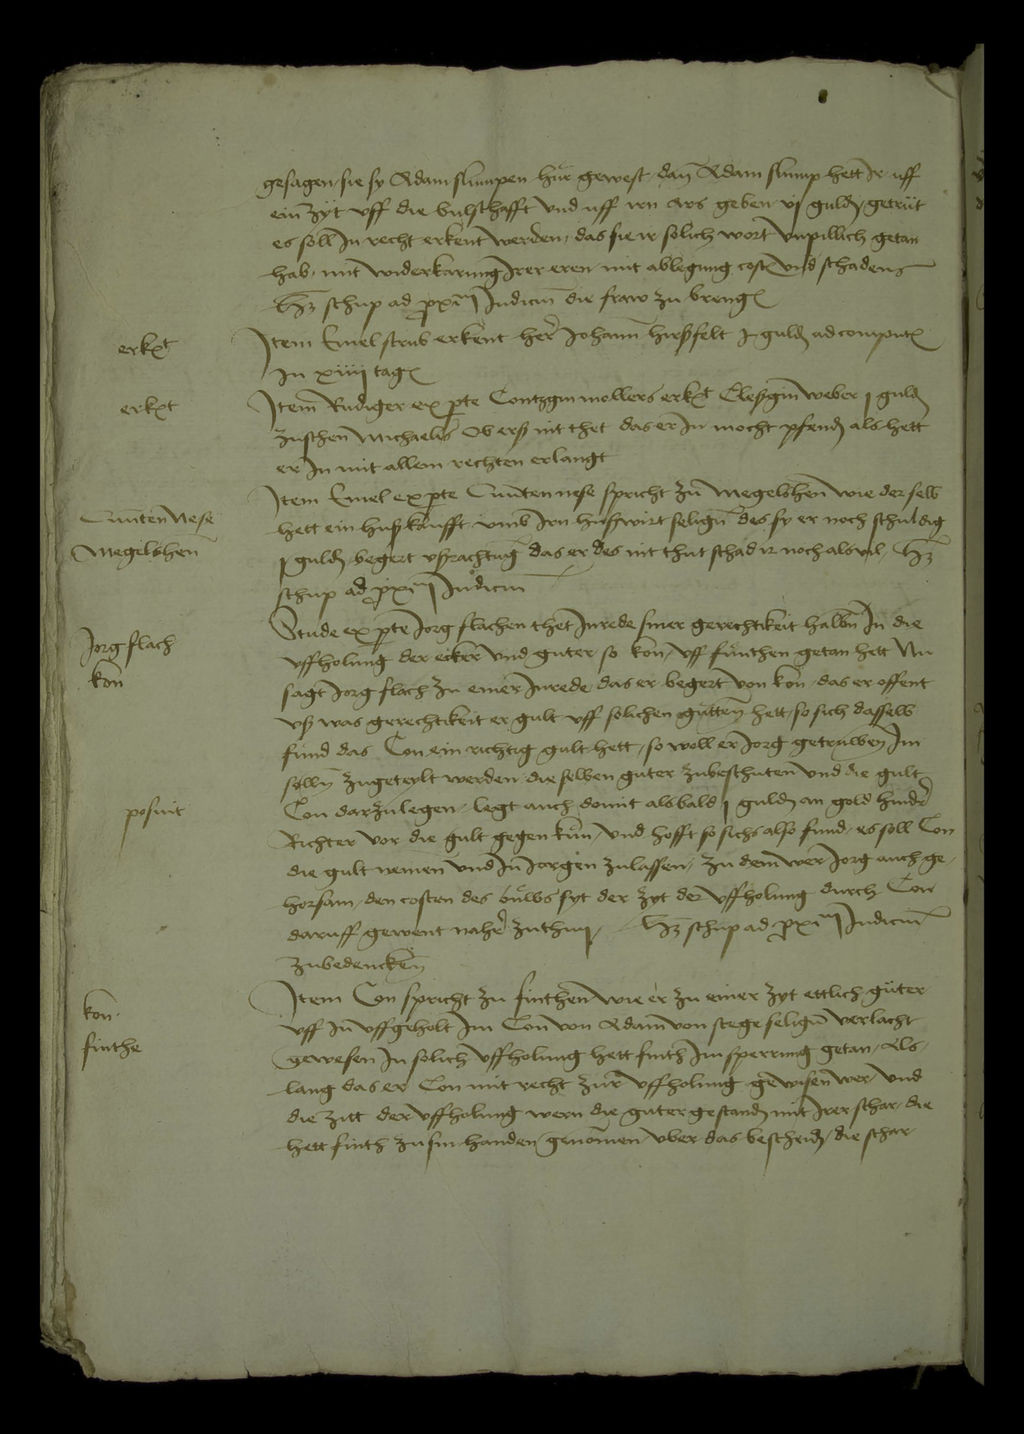 gesagen sie sy Adam slumpen hůr gewest dan̄ Adam slump hett Ir uff
ein zyt uff die bulschafft und uff irn ars geben vj guldẽ getrut
es soll In recht erkent werden, das sie ir solich wort unpillich getan
hab, mit widerkarung Irer eren mit ablegung cost und schadens
Hz schup ad ꝓxim̄ Iudiciu͂ die fraw zu brengẽ
erkñt
Item Emel strub erkent her Johann̄ hirßfelt j guldẽ ad computũ
In xiiij tagẽ
erkñt
Item Rudiger ex ꝑte Contzgin mollers erkñt Cleßgin̄ weber j guldẽ
zuschen Michaelis Ob erß nit thet das er In mocht pfendẽ als hett
er In mit allem rechten erlangt
Cun̄ten Nese
Megilßhen̄
Item Emel ex ꝑte Cun̄ten nese spricht zu̇ Megelßhen̄ wie derselb
hett ein huß kaufft umb irn hußwirt seligen̄ des sy er noch schuldig
j guldẽ begert ußrachtu̇g das er des nit thut schad ir noch alsvil, Hz
schup ad ꝓxim̄ Iudiciu͂
Jorg flach
kon̄
Stude ex ꝑte Jorg flachen thet Inrede siner gerechtikeit halbñ In die
uffholung der ecker̄ und guter so kon̄ uff finthen getan hett Nu
sagt Jorg flach zu einer Inrede das er begert von kon̄ das er offent
uß was gerechtikeit er gult uff solichen guttern̄ hett so sich dasselb
fund das Con ein richtig gult hett so woll er Jorg getruwen̄ Im
sollñ zugeteylt werden die selben guter zubeschuten und die gult
posuit
Con darzulegen, legt auch domit alsbald j guldẽ an gold hinder̃
Richter vor die gult gegen kůn, und hofft so sichs also fund, es soll Con
die gult nemen und In Jorgen zulassen, zu dem wer Jorg auch ge-
horsam, den costen des buwes syt der zyt der uffholung durch Con
daruff gewent naher̃ zuthun, Hz schup ad ꝓxim̄ Iudiciu͂
zubedencken̄
kon̄.
finthe
Item Con spricht zu finthen̄ wie er zu einer zyt ettlich guter
uff In uffgeholt Im Con von Adam von stege seligen̄ verlacht
gewesen In solich uffholung hett finth Im sperrung getan, Als-
lang das er Con mit recht zur uffholung gewisen wer, und
die zitt der uffholung wern die guter gestandẽ mit Irer schar, die
hett finth zu sin handen genomen uber das bescheidẽ, die schar